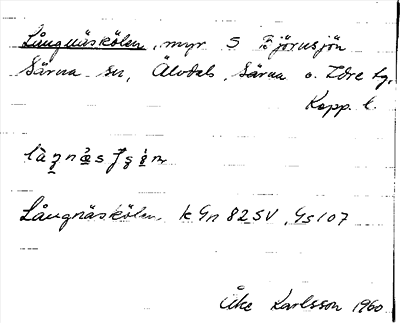 Långnäskölen, myr S Fjörusjön
Särna sn, Älvdals, Särna o. Idre tg.
Kopp. l.
Långnäskölen, k Gn 82 SV, Gs 107
Åke Karlsson 1960